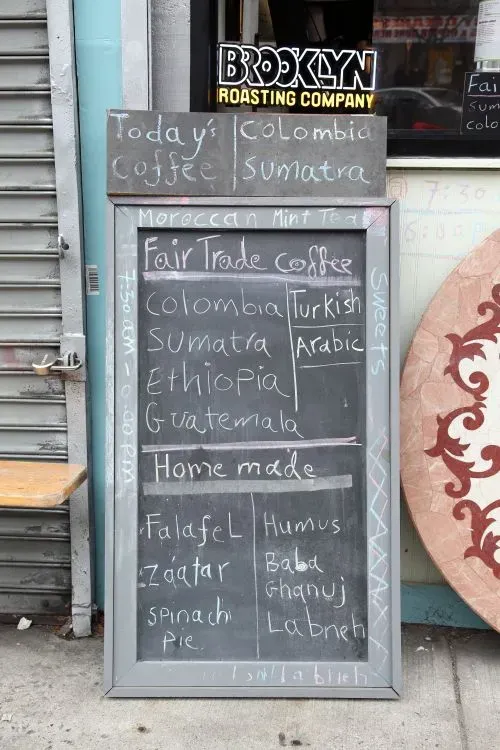 BROOKLYN
ROASTING COMPANY
Today's
Coffee
Colombia
Sumatra
Fai
Sum
Colo
Moroccan Mint Tea
Fair Trade Coffee
Colombia
Sumatra
Ethiopia
Guatemala
Turkish
Arabic
Sweets
7:30AM - 6:00PM
Home made
Falafel
Záatar
Spinach
Pie
Humus
Baba
Ghanuj
Labneh
7:30